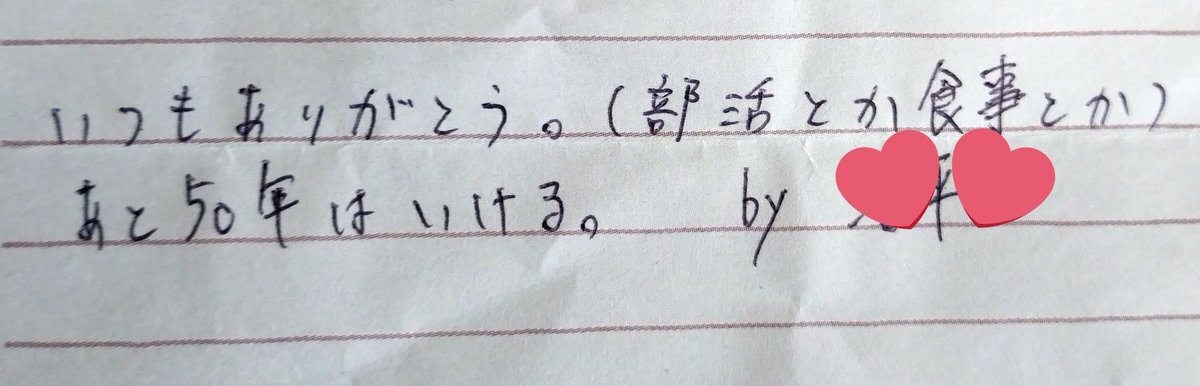 いつもありがとう。(部活とか食事とか)
あと50年はいける。 by